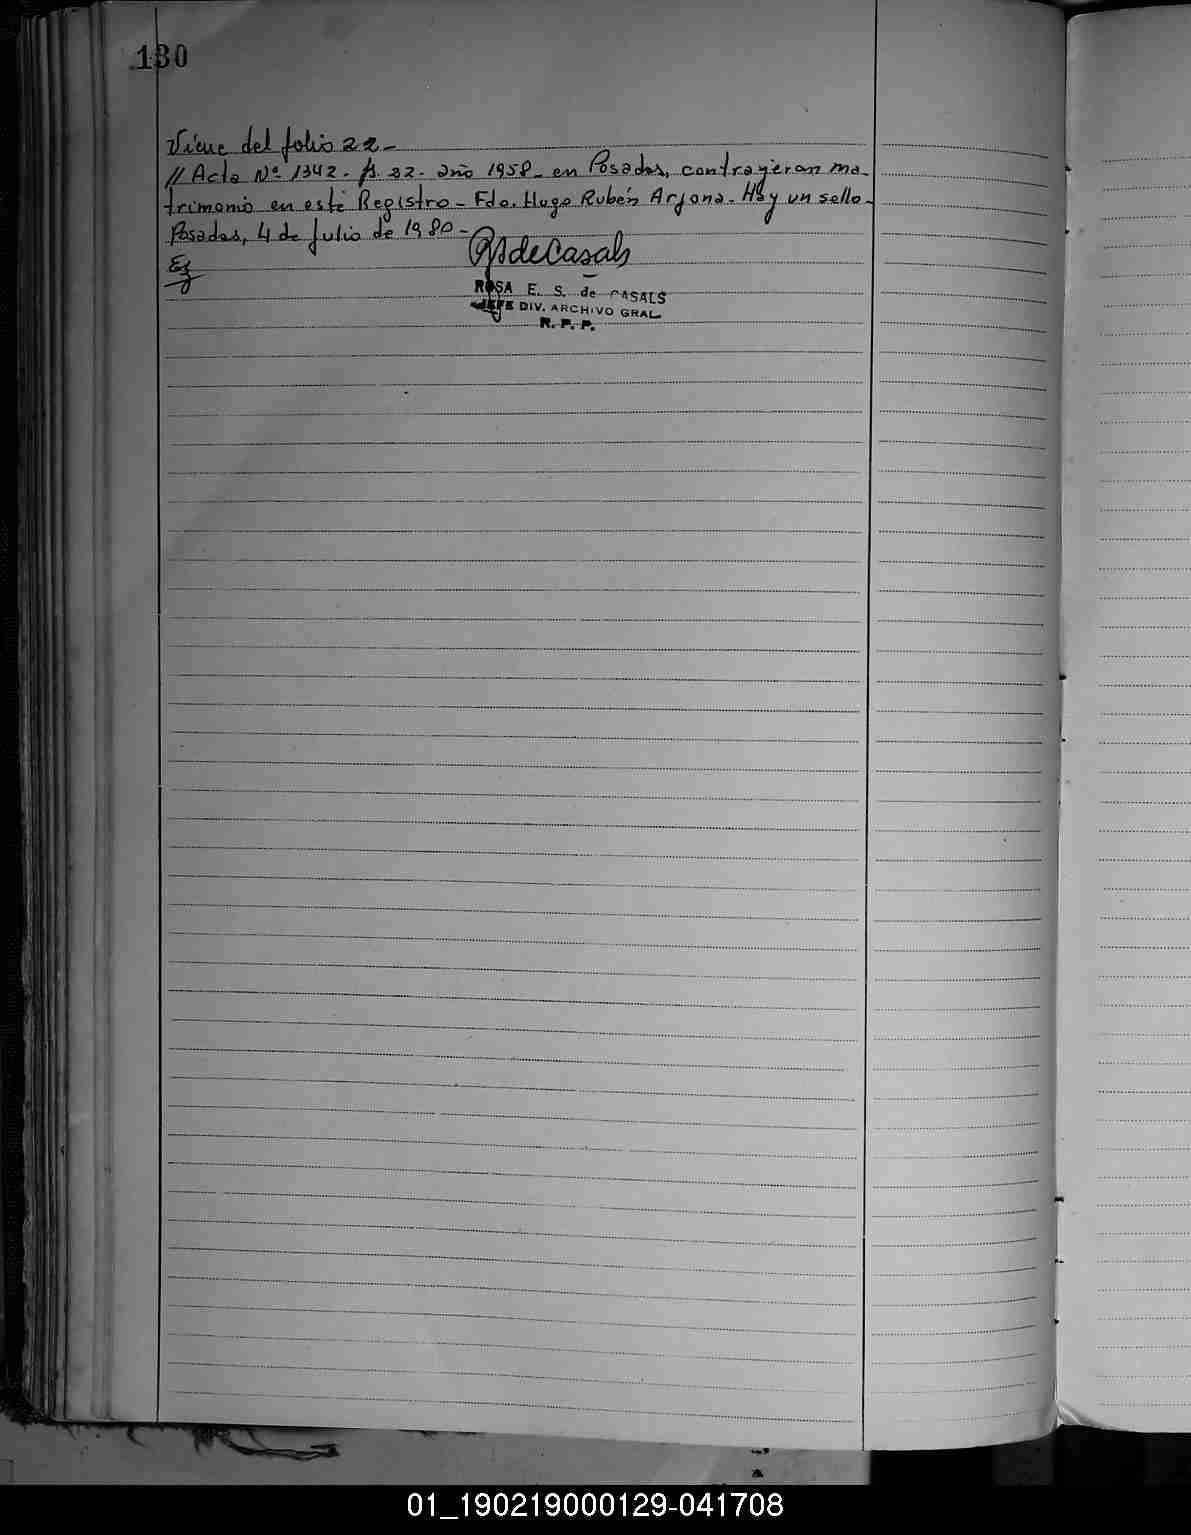 130
Viene del folio 22-
// Acta Nº 1342. fs. 22. año 1958- en Posadas, contrayeron ma-
trimonio en este Registro - Fdo. Hugo Rubén Arjona. Hay un sello-
Posadas, 4 de Julio de 1980-
RSdeCasals
ROSA E. S. de CASALS
JEFE DIV. ARCHIVO GRAL.
R. P. P.
01_190219000129-041708